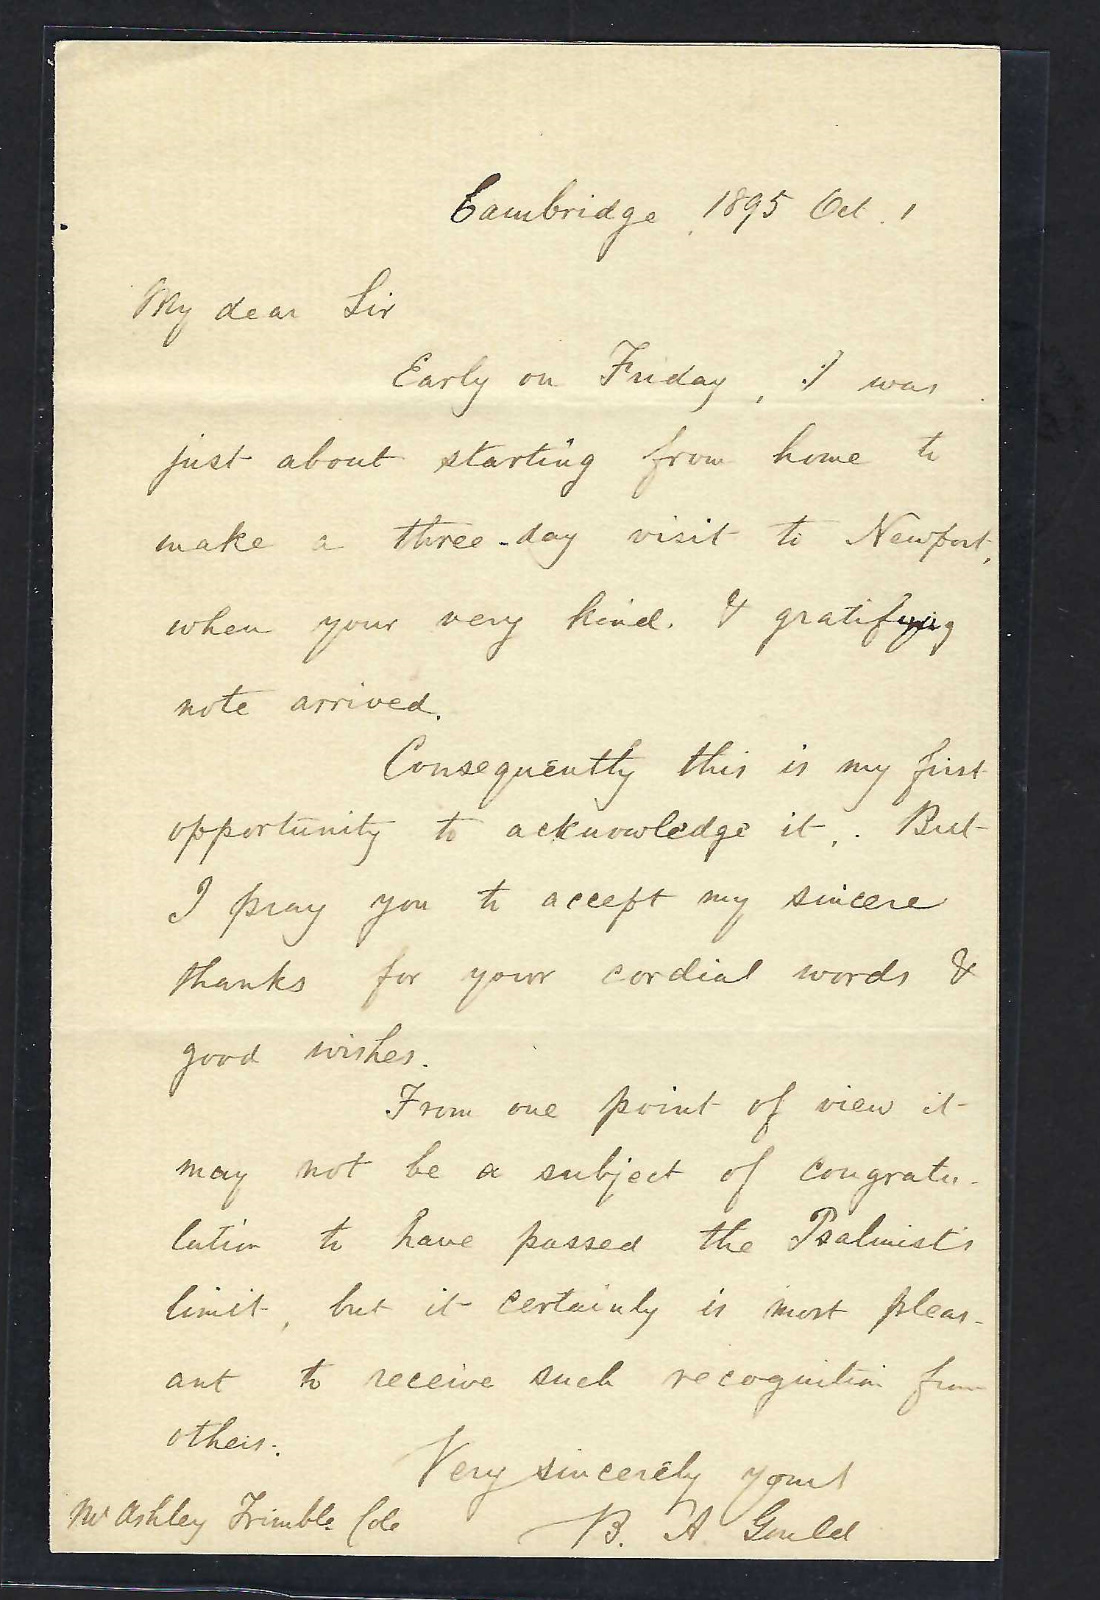 Cambridge, 1895 Oct. 1
My dear Sir
Early on Friday, I was
just about starting from home to
make a three-day visit to Newport,
when your very kind & gratifying
note arrived.
Consequently this is my first
opportunity to acknowledge it. But
I pray you to accept my sincere
thanks for your cordial words &
good wishes.
From one point of view it
may not be a subject of congratu-
lation to have passed the Psalmist's
limit, but it certainly is most pleas-
ant to receive such recognition from
others.
Very sincerely yours
B. A. Gould
Mr Ashley Trimble Cole